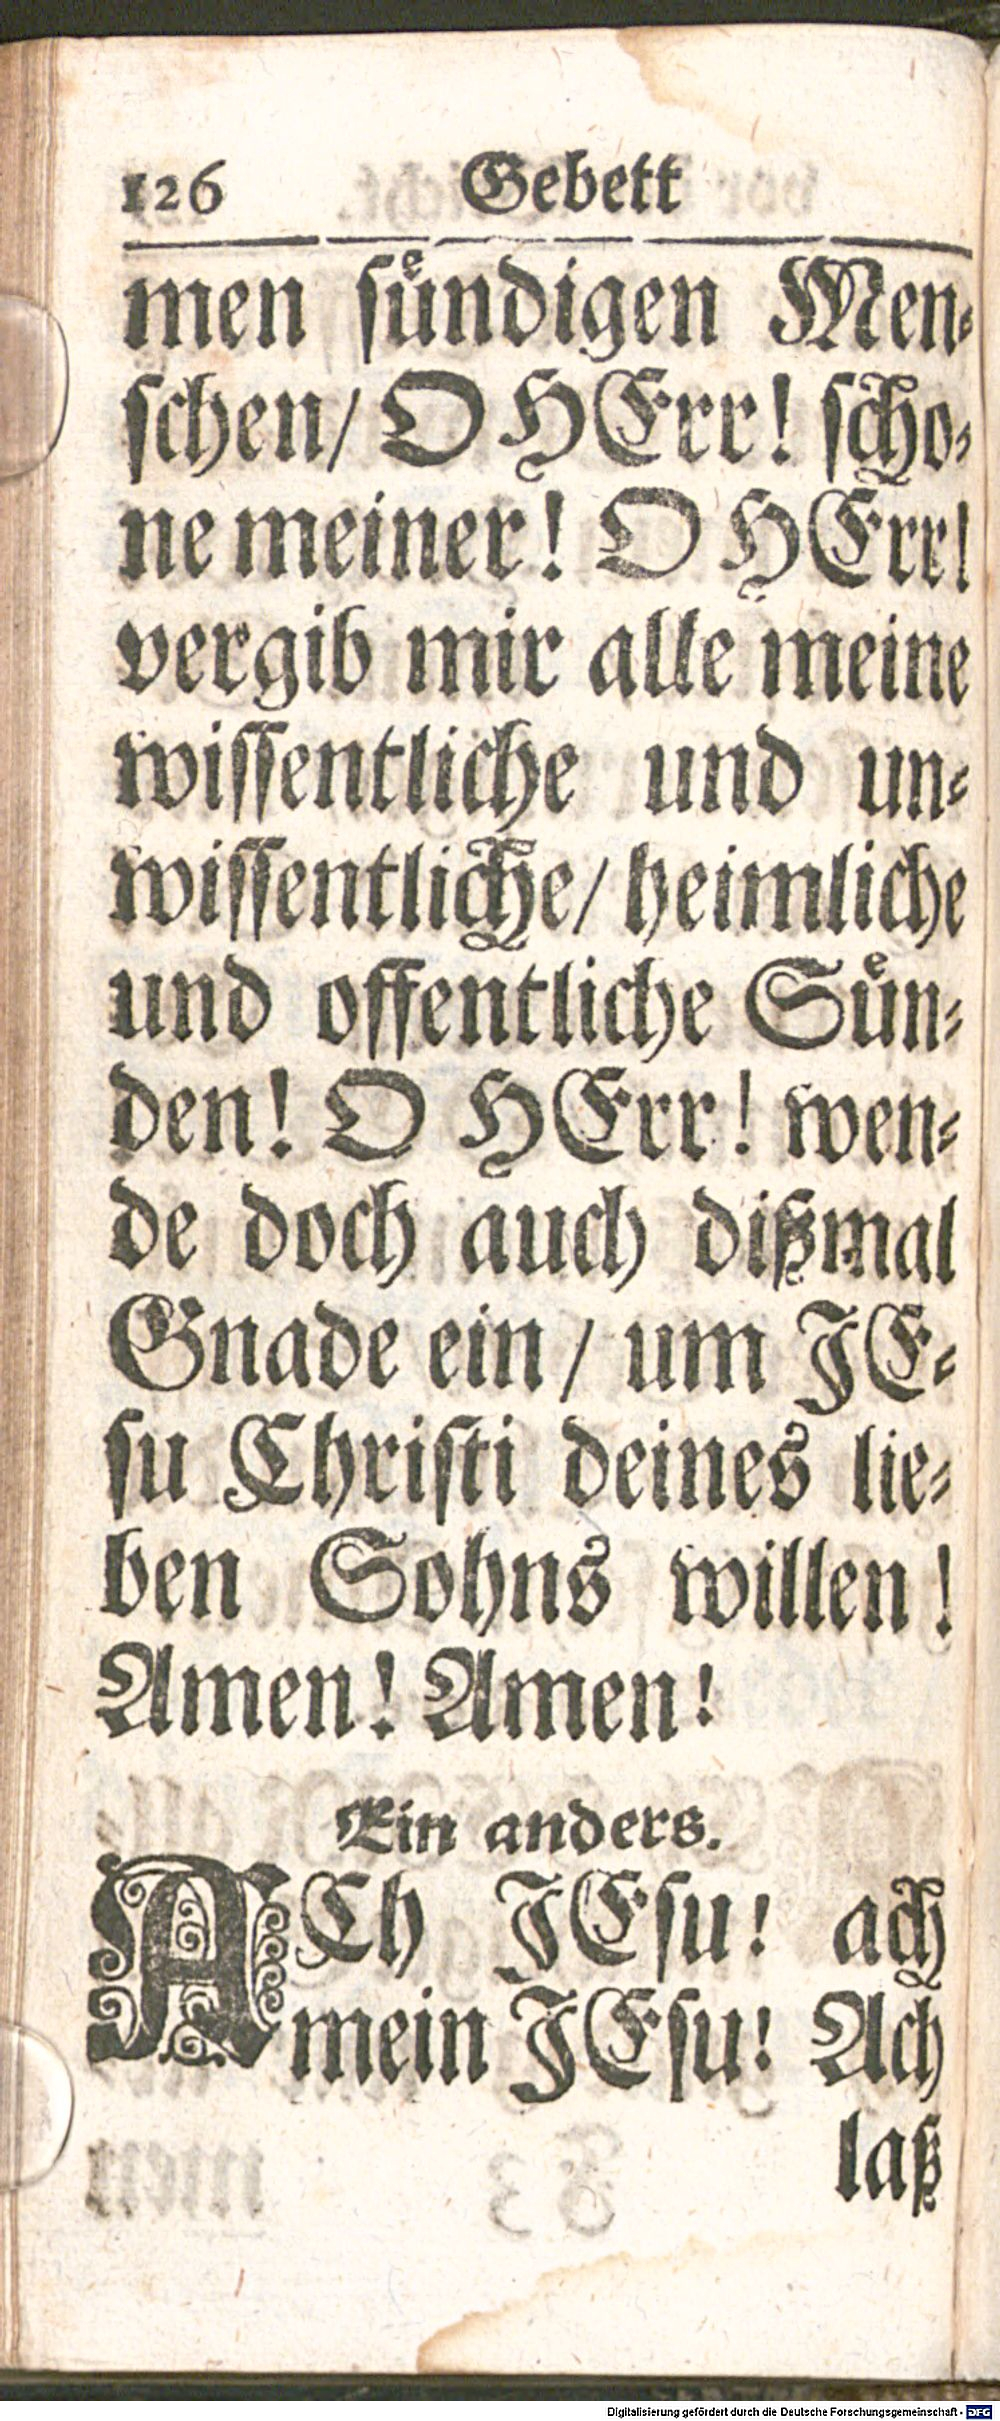 126 Gebett
men ſuͤndigen Men⸗
ſchen/ O HErr! ſcho⸗
ne meiner! O HErr!
vergib mir alle meine
wiſſentliche und un⸗
wiſſentliche/ heimliche
und offentliche Suͤn⸗
den! O HErr! wen⸗
de doch auch dißmal
Gnade ein / um JE⸗
ſu Chriſti deines lie⸗
ben Sohns willen!
Amen! Amen!
Ein anders.
ACh JEſu! ach
mein JEſu! Ach
laß
Digitalisierung gefördert durch die Deutsche Forschungsgemeinschaft - DFG